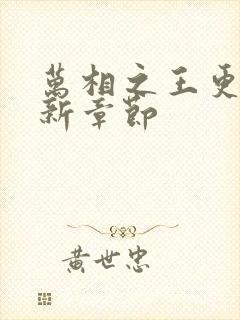 萬相之王更
新章節
黄世忠